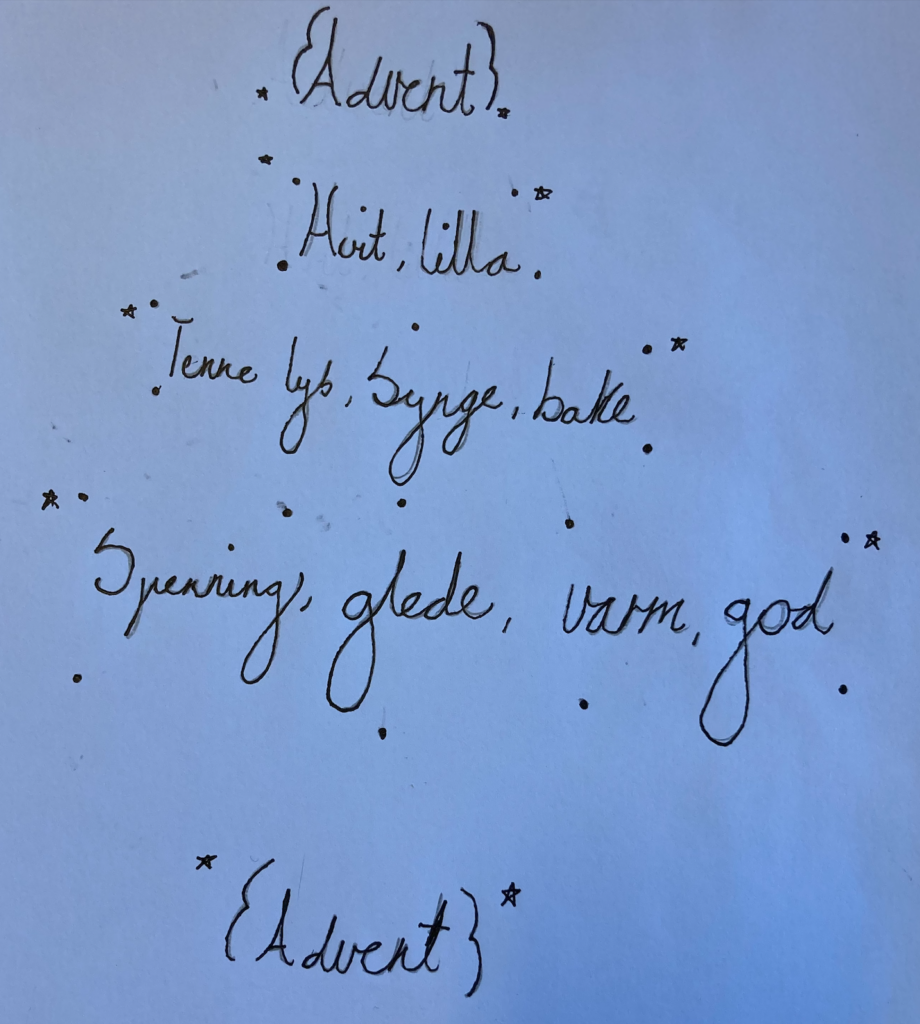 {Advent}
Hvit, lilla.
Tenne lys, synge, bake
Spenning, glede, varm, god
{Advent}